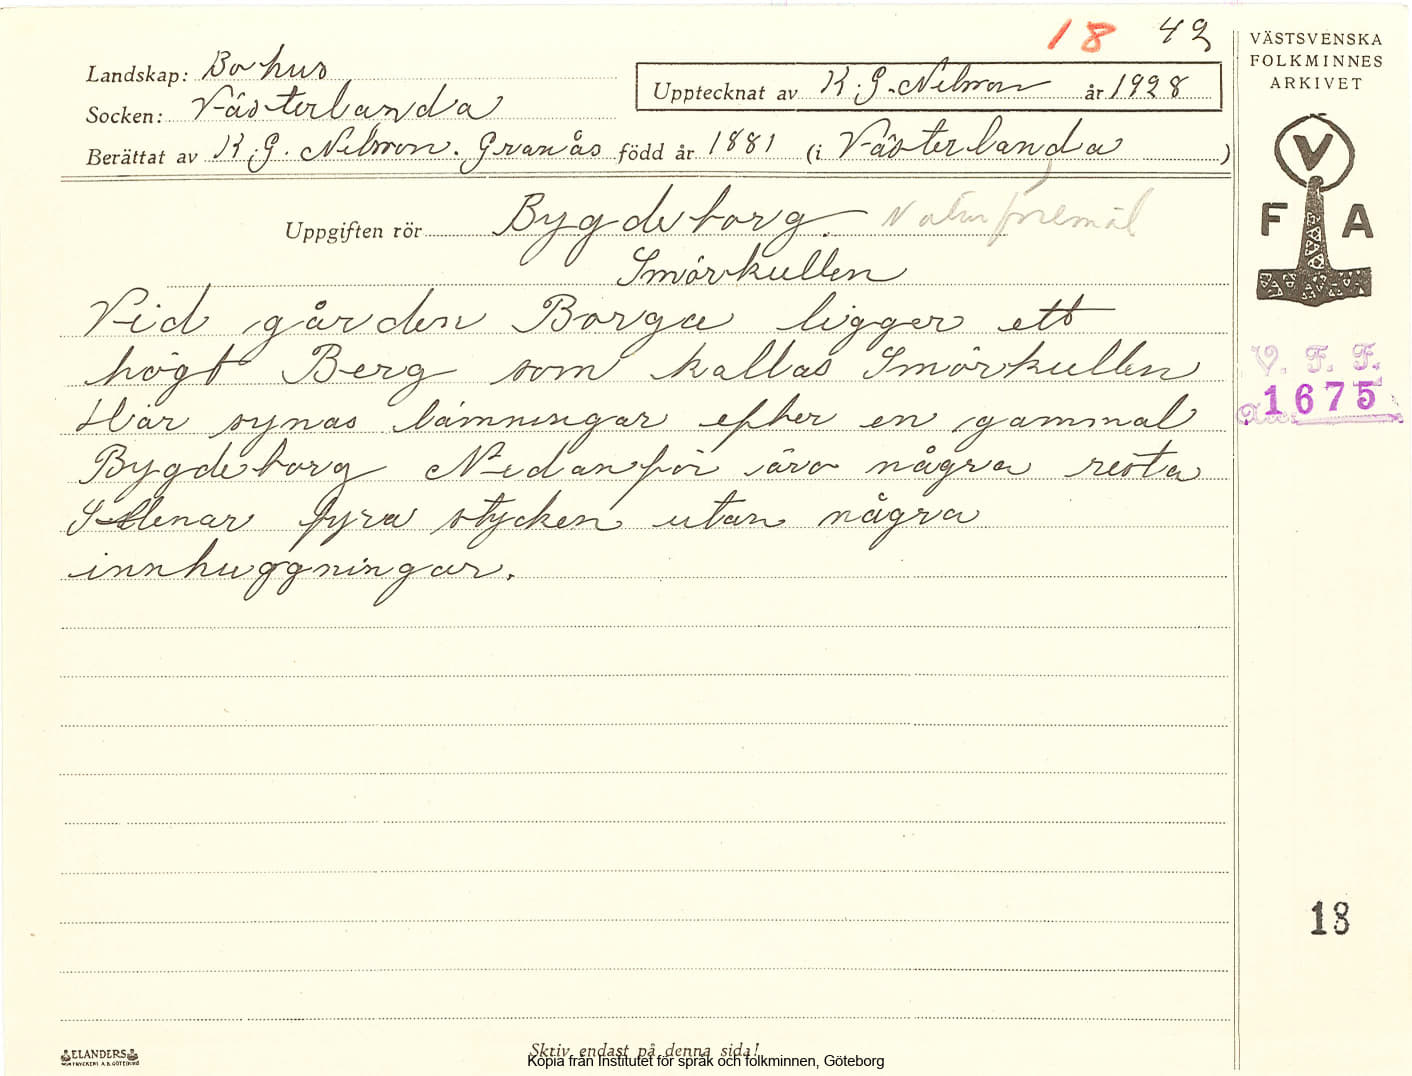 18 42
Landskap: Bohus
Socken: Västerlanda
Upptecknat av K. G. Nilsson år 1928
Berättat av K. G. Nilsson. Granås född år 1881 (i Västerlanda)
Uppgiften rör Bygdeborg. Naturföremål
Smörkullen
Vid gården Borga ligger ett
högt Berg som kallas Smörkullen
Här synas lämningar efter en gammal
Bygdeborg Nedanför äro några resta
Stenar fyra stycken utan några
innhuggningar.
VÄSTSVENSKA
FOLKMINNES
ARKIVET
V
F A
V. F. F.
1675
18
ELANDERS
Skriv endast på denna sida!
Kopia från Institutet för språk och folkminnen, Göteborg